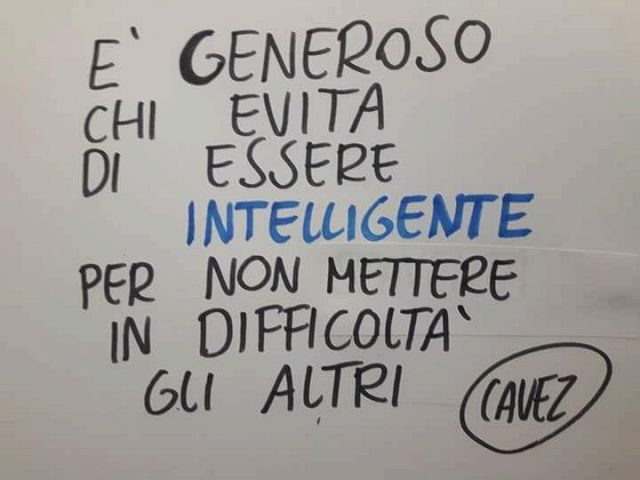 E' GENEROSO
CHI EVITA
DI ESSERE
INTELLIGENTE
PER NON METTERE
IN DIFFICOLTA'
GLI ALTRI
CAVEZ